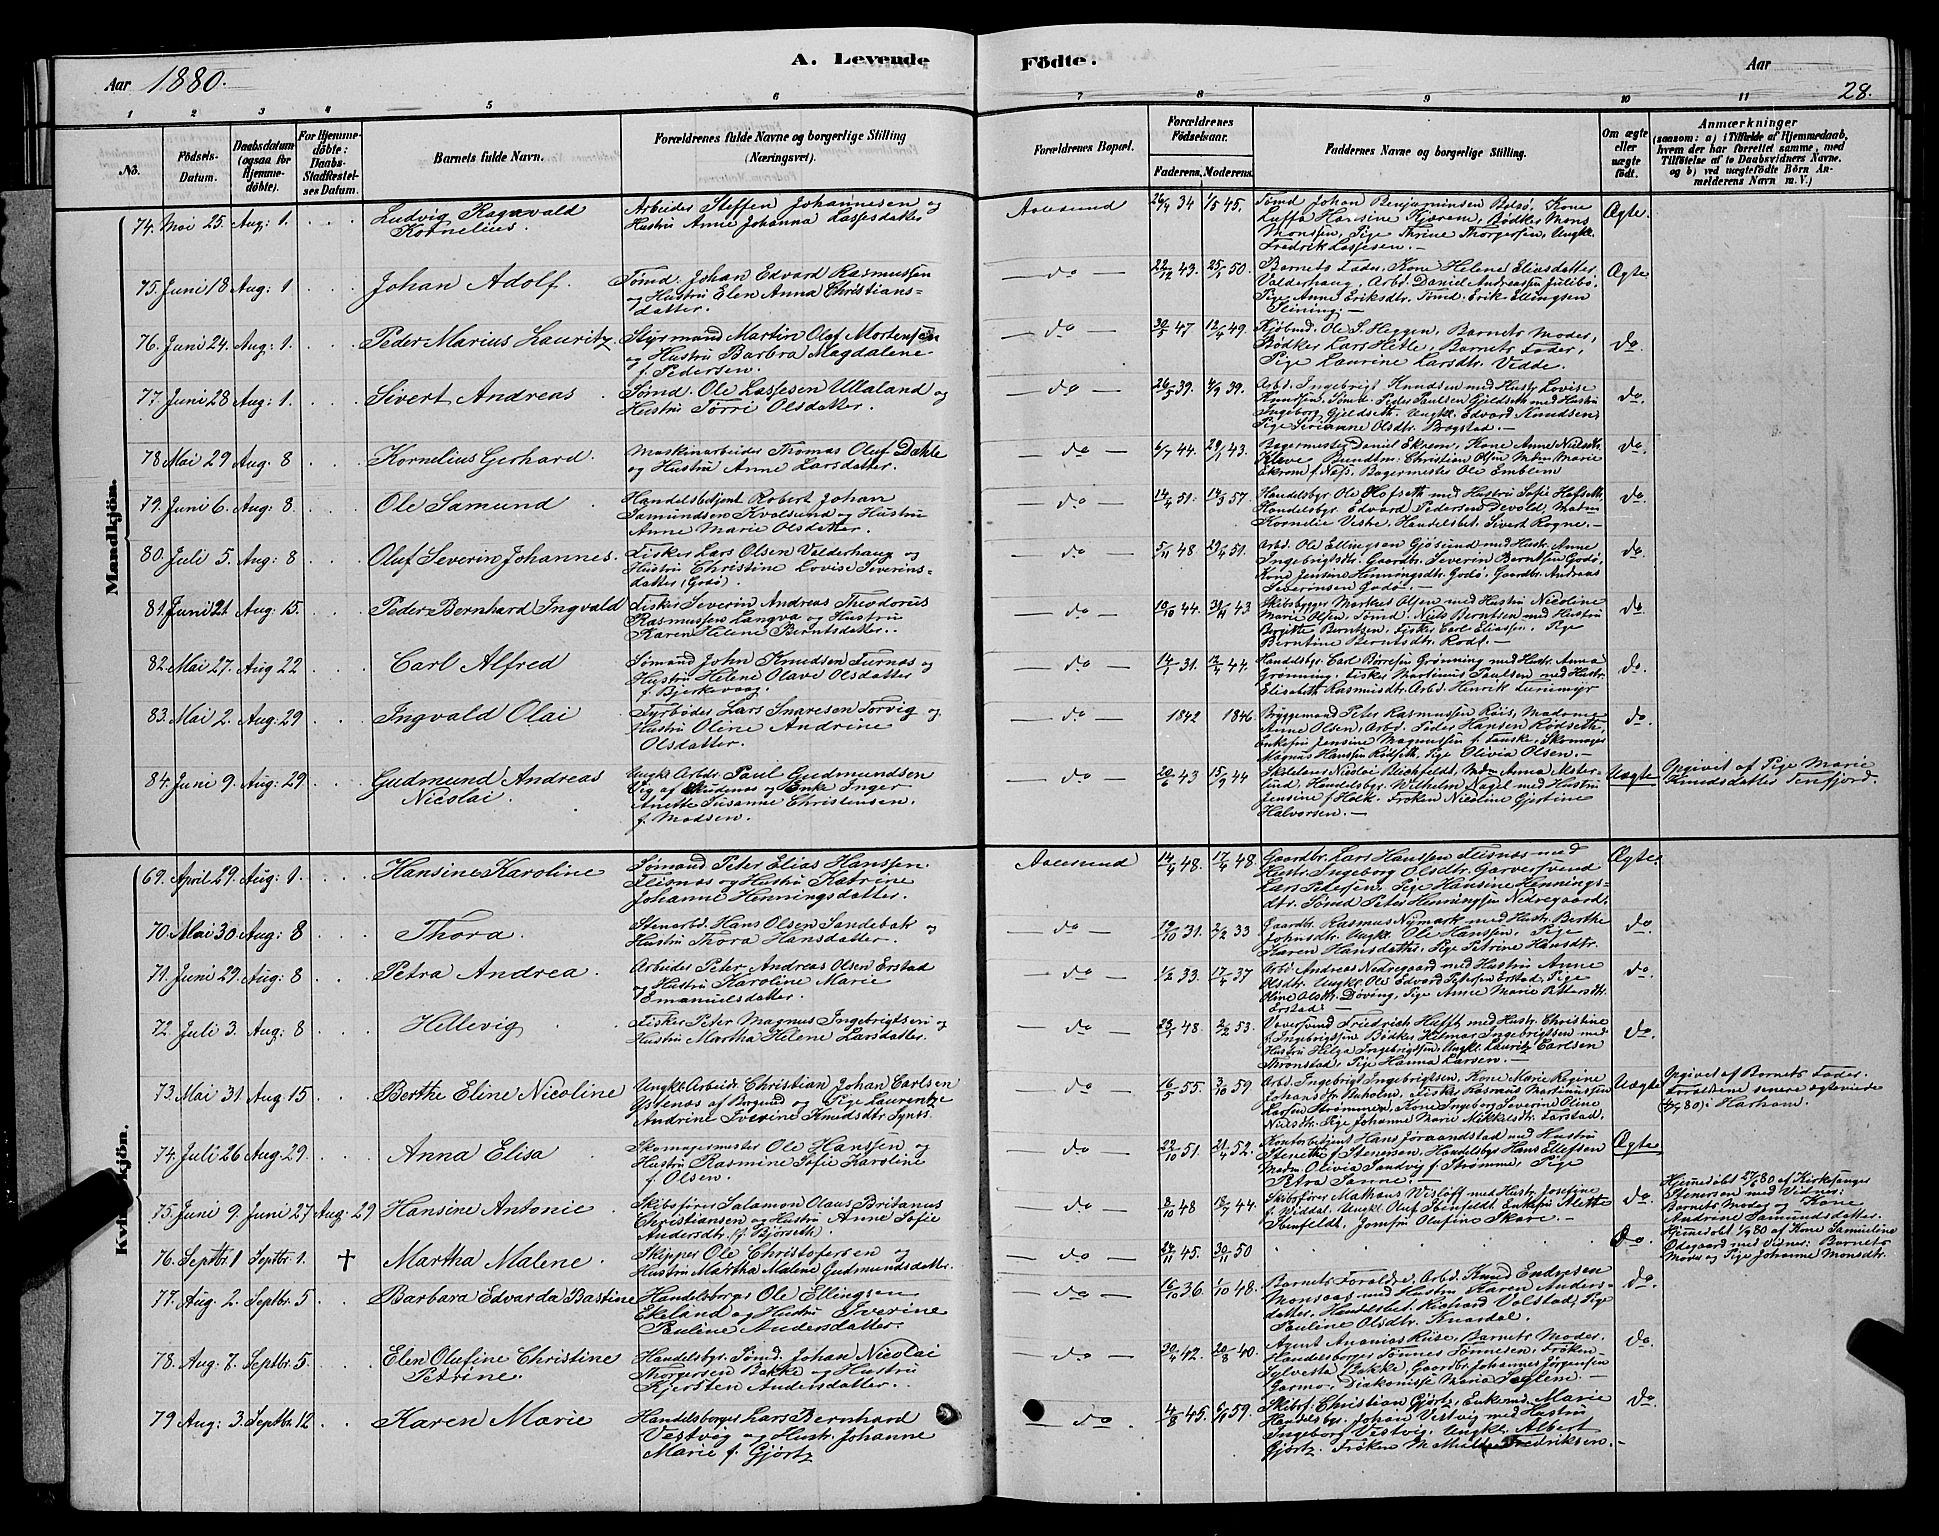 Aar 1880.
A. Levende Födte.
Aar
28.
1 2 3 4 5 6 7 8 9 10 11
No.
Födsels-Datum.
Daabsdatum (ogsaa for Hjemme-döbte).
For Hjemme-döbte: Daabs-Stadfæstel-ses Datum.
Barnets fulde Navn.
Forældrenes fulde Navne og borgerlige Stilling (Næringsvei).
Forældrenes Bopæl.
Forældrenes Födselsaar.
Faderens. Moderens.
Faddernes Navne og borgerlige Stilling.
Om ægte eller uægte födt.
Anmærkninger
(saasom: a) i Tilfælde af Hjemmedaab, hvem der har forrettet samme, med Tilföielse af to Daabsvidners Navne. og b) ved uægtefödte Börn Anmelderens Navn m. V.)
Mandkjön.
74. Mai 25. Aug: 1. Ludvig Ragnvald
Kornelius.
Arbeider Steffen Johannesen og
Hustru Anne Johanna Lassesdatter
Aalesund 26/4 34 1/5 45.
Tømd Johan Benjaminsen Bolsø, Kone
Luffa Hansine Kjærem, Bødker Mons
Monssen, Pige Thrine Thorgersen, Ungkl.
Fredrik Lassesen.
Ægte
75. Juni 18 Aug: 1 Johan Adolf.
Tømd. Johan Edvard Rasmussen
og Hustru Elen Anna Christians-
datter
do 22/12 43. 25/5 50.
Barnets Fader, Kone Helene Eliasdatter
Valderhaug, Arbd. Daniel Andreassen Julibø,
Pige Anne Eriksdtr. Tømd. Erik Ellingsen
Ægte
76. Juni 24. Aug: 1. Peder Marius Lauritz
Styrmand Martin Olaf Mortensen
og Hustru Barbra Magdalene
f. Pedersen.
do 30/5 47 12/4 49.
Kjøbmd. Ole S. Heggen, Barnets Moder,
Bødker Lars Hetle, Barnets Fader,
Pige Laurine Larsdtr. Vedde.
do.
77. Juni 28 Aug: 1. Sivert Andreas
Sømd. Ole Lassesen Ulaland og
Hustru Torri Olsdatter.
do 26/5 39. 4/9 39.
Arbd. Ingebrigt Knudsen med Hustr. Lovise
Knudsen. Tømd. Peder Paulsen Gjeldseth med Hustru
Ingeborg Gjeldseth. Ungkl. Edvard Knudsen,
Pige Olsdtr. Brogstad.
do.
78 Mai 29 Aug: 8 Kornelius Gerhard.
Maskinarbeider Thomas Oluf Dahle
og Hustru Anne Larsdatter.
do 6/7 44. 29/1 43.
Bagermester Daniel Ekrem, Kone Anne Nielsdtr.
Kleve. Bundtm. Christian Olsen Mdm Marie
Ekrem f. Næss, Bagermester Ole Emblem
do.
79. Juni 6. Aug: 8 Ole Samund
Handelsbetjent Robert Johan
Samundsen Kvalsund og Hustru
Anne Marie Olsdatter.
do 14/4 51. 14/3 57.
Handelsbgr. Ole Hofseth med Hustru Sofie Hofseth,
Handelsbgr. Edvard Pedersen Devold, Madm
Kornelie Vestre, Handelsbet. Sivert Rogne.
do
80. Juli 5. Aug: 8 Oluf Severin Johannes.
Fisker Lars Olsen Valderhaug og
Hustru Christine Lovise Severins-
datter (Godø).
do 5/11 48 29/4 51.
Arbd. Ole Ellingsen Gjøsund med Hustr. Anne
Ingebrigtsdtr. Gaardbr. Severin Berntsen Godø,
Kone Jensine Henningsdtr. Godø, Gaardbr. Andreas
Severinsen Godø.
do
81. Juni 21 Aug: 15. Peder Bernhard Ingvald
Fisker Severin Andreas Theodorus
Rasmussen Langva og Hustru
Karen Helene Berntsdatter.
do 10/10 44. 30/11 43
Skibsbygger Markus Olsen med Hustru Nicoline
Marie Olsen, Tømd. Niels Berntsen med Hustru
Birgitte Berntzen, Fisker Carl Eliassen, Pige
Berntine Berntsdtr. Rodt.
do
82. Mai 27. Aug 22 Carl Alfred
Sømand John Knudsen Furnæs og
Hustru Helene Olave Olsdatter
f. Bjerkevaag.
do 14/1 31. 12/4 44.
Handelsbgr. Carl Børresen Grønning med Hustr. Anna
Grønning. Fisker Martinus Paulsen med Hustr
Elisabeth Rasmusdtr. Arbd. Henrik
do.
83. Mai 2. Aug: 29 Ingvald Olai
Fyrbøder Lars Snaresen Torvig og
Hustru Oline Andrine
Olsdatter.
do 1842 1846.
Bryggemand Peter Rasmussen Røis, Madame
Anne Olsen, Arbd. Peder Hansen Rødseth,
Enkefru Jensine Magnussen f. Fauske, Skomager
Magnus Hanssen Rødseth, Pige Olivia Olsen.
do.
84. Juni 9. Aug: 29 Gudmund Andreas
Nicolai.
Ungk. Arbdr. Paul Gudmundsen
Vig af Skudenæs og Enke Inger
Anette Susanne Christensen.
f. Madsen.
do 20/6 43 15/9 44
Nicolai Blichfeldt, Mdm Anna
Handelsbgr. Wilhelm Nagel med Hustru
Jensine f. Holk. Frøken Nicoline Gjertine
Halvorsen.
Uægte
Opgivet af Pige Marie
Knudsdatter Tenfjord.
Kvindekjön.
69. April 29. Aug: 1. Hansine Karoline
Sømand Peter Elias Hanssen.
Fleisnæs og Hustru Katrine
Johanne Henningsdatter.
Aalesund 14/4 48. 17/6 48.
Gaardbr. Lars Hanssen Fleisnæs med
Hustr. Ingeborg Olsdtr.
Lars Pedersen, Pige Hansine Hennings-
dtr. Sømd Peter Henningsen Nedregaard.
Ægte.
70. Mai 30. Aug: 8 Thora.
Stenarbd. Hans Olsen Sandebak og
Hustru Thora Hansdatter.
do 19/10 31. 2/2 33
Gaardbr. Rasmus Nymark med Hustr. Berthe
Johnsdtr. Ungkl. Ole Hanssen, Pige
Karen Hansdatter. Pige Petrine Hansdtr.
do.
71. Juni 29. Aug: 8 Petra Andrea
Arbeider Peter Andreas Olsen Erstad
og Hustru Karoline Marie
Emanuelsdatter.
do 1/2 33. 17/4 37
Arbd. Andreas Nedregaard med Hustru Anne
Olsdtr. Ungkl. Ole Edvard Petersen Erstad, Pige
Oline Olsdtr. Døving, Pige Anne Marie Pettersdtr.
Erstad.
do
72. Juli 3. Aug: 8 Hellevig
Fisker Peter Magnus Ingebrigtsen og
Hustru Martha Helene Larsdatter.
do 23/1 48. 2/2 53.
Friedrich Hufft med Hustr. Christine
f. Ingebrigtsen Bødker Helmar Ingebrigtsen med
Hustru Helga Ingebrigtsen, Ungkl. Lauritz Carlsen
Thronstad, Pige Hanna Larsen.
do.
73. Mai 31 Aug 15 Berthe Eline Nicoline
Ungkl. Arbeidr. Christian Johan Carlsen
Ystenes af Borgund og Pige Laurentze
Andrine Iverine Knudsdtr. Synes.
do 16/5 55. 3/10 59
Arbd. Ingebrigt Ingebrigtsen, Kone Marie Regine
Johansdtr. Buholm, Fisker Rasmus Martinussen
Larsen Strømmen, Kone Ingeborg Severine Oline
Nielsdtr. Pige Johanne Marie Mikkelsdtr. Farstad.
Uægte
Opgivet af Barnets Fader.
Forældrene senere ægteviede
i Harham.
74. Juli 26 Aug: 29. Anna Elisa
Skomagermester Ole Hanssen og
Hustru Rasmine Sofie Karoline
f. Olsen.
do 22/10 51. 21/4 52.
Kontorbetjent Hans Jøraandstad med Hustru
Stenette f. Stenersen, Handelsbgr. Hans Ellefsen
Madm Olivia Sandvig f. Strømme, Pige
Petra Sanne.
Ægte
75. Juni 9. Juni 27 Aug: 29 Hansine Antonie
Skibsfører Salamon Olaus Britanus
Christiansen og Hustru Anne Sofie
Andersdtr. (f. Bjørseth)
do 8/10 48 18/7 44.
Skibsfører Mathæus Wisløff med Hustr. Josefine
f. Widdal. Ungkl. Oluf Ibenfeldt. Enkefru Alette
Ibenfeldt. Jomfru Olufine Skare.
do
Hjemdøbt 27/6 80 af Kirkesanger
Stenersen med Vidner:
Barnets Moder og Kone
Andrine Samundsdatter.
76. Septbr. 1 Septbr. 1. † Martha Malene.
Skipper Ole Christofersen og
Hustru Martha Malene Gudmundsdatter.
do 24/11 45. 30/11 50
Do.
Hjemdøbt 1/9 80 af Kone Samueline
Ødegaard med Vidner: Barnets
Moder og Pige Johanne Monsdtr.
77. Aug: 2. Septbr. 5 Barbara Edvarda Bastine
Handelsborger Ole Ellingsen
Ekeland og Hustru Iverine
Pauline Andersdatter.
do 16/10 36. 1/10 48.
Barnets Forældre, Arbd. Knud Endresen
Monsaas med Hustru Karen Anders-
datter. Handelsbet. Richard Volstad, Pige
Pauline Olsdtr. Knardal.
do.
78. Aug: 7. Septbr. 5. Elen Olufine Christine
Petrine.
Handelsbgr. Tømd. Johan Nicolai
Thorgersen Bakke og Hustru
Kjersten Andersdatter.
do 20/4 42. 20/8 40.
Agent Ananias Ruse. Barnets Moder,
Handelsborger Tønnes Tønnesen, Frøken
Sylvetta Bakke, Gaardbr. Johannes Jørgensen
Garmo, Diakonisse Maria Seglem.
do
79 Aug: 3. Septbr. 12 Karen Marie
Handelsborger Lars Bernhard
Vestvig og Hustr. Johanne
Marie f. Gjørtz
do. 4/8 45. 6/1 59.
Skibsf. Christian Gjørtz, Enkemd. Marie
Handelsbgr. Johan Vestvig med Hustru
Ingeborg Vestvig. Ungkl. Albert
Gjørtz. Frøken Mathilde Fredriksen.
do